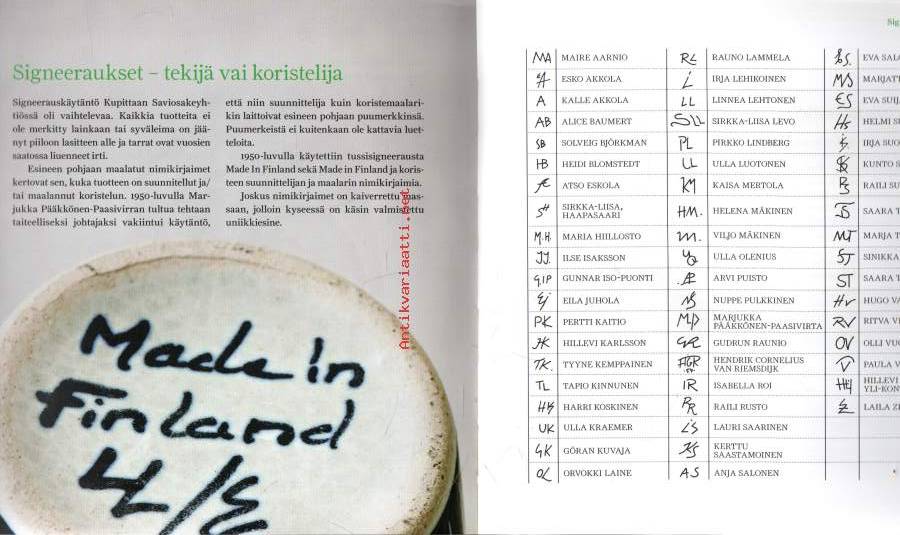 Signeeraukset – tekijä vai koristelija
Signeerauskäytäntö Kupittaan Saviosakeyh-
tiössä oli vaihtelevaa. Kaikkia tuotteita ei
ole merkitty lainkaan tai syväleima on jää-
nyt piiloon lasitteen alle ja tarrat ovat vuosien
saatossa liuenneet irti.
Esineen pohjaan maalatut nimikirjaimet
kertovat sen, kuka tuotteen on suunnitellut ja/
tai maalannut koristelun. 1950-luvulla Mar-
jukka Pääkkönen-Paasivirran tultua tehtaan
taiteelliseksi johtajaksi vakiintui käytäntö,
että niin suunnittelija kuin koristemaalari-
kin laittoivat esineen pohjaan puumerkkinsä.
Puumerkeistä ei kuitenkaan ole kattavia luet-
teloita.
1950-luvulla käytettiin tussisigneerausta
Made In Finland sekä Made in Finland ja koris-
teen suunnittelijan ja maalarin nimikirjaimia.
Joskus nimikirjaimet on kaiverrettu mas-
saan, jolloin kyseessä on käsin valmistettu
uniikkiesine.
Antikvariaatti.net
Made in
Finland
Sig
MA MAIRE AARNIO
ESKO AKKOLA
A KALLE AKKOLA
AB ALICE BAUMERT
SB SOLVEIG BJÖRKMAN
HB HEIDI BLOMSTEDT
ATSO ESKOLA
SH SIRKKA-LIISA,
HAAPASAARI
M.H. MARIA HIILLOSTO
JJ. ILSE ISAKSSON
GIP GUNNAR ISO-PUONTI
Ej EILA JUHOLA
PK PERTTI KAITIO
HK HILLEVI KARLSSON
TK. TYYNE KEMPPAINEN
TL TAPIO KINNUNEN
HK HARRI KOSKINEN
UK ULLA KRAEMER
GK GÖRAN KUVAJA
OL ORVOKKI LAINE
RL RAUNO LAMMELA
IRJA LEHIKOINEN
LL LINNEA LEHTONEN
SLL SIRKKA-LIISA LEVO
PL PIRKKO LINDBERG
LL ULLA LUOTONEN
KM KAISA MERTOLA
HM. HELENA MÄKINEN
m. VILJO MÄKINEN
ULLA OLENIUS
AP ARVI PUISTO
NUPPE PULKKINEN
MP MARJUKKA
PÄÄKKÖNEN-PAASIVIRTA
GR GUDRUN RAUNIO
HENDRIK CORNELIUS
VAN RIEMSDIJK
IR ISABELLA ROI
RR RAILI RUSTO
LS LAURI SAARINEN
KS KERTTU
SAASTAMOINEN
AS ANJA SALONEN
ES. EVA SAL
MS MARJATT
ES EVA SUIJ
Hs HELMI S
IRJA SUO
KUNTO S
RS RAILI SU
SAARA T
MT MARJA T
ST SINIKKA
ST SAARA T
HV HUGO VA
RV RITVA V
OV OLLI VU
V PAULA V
HILLEVI
YLI-KON
LAILA Z